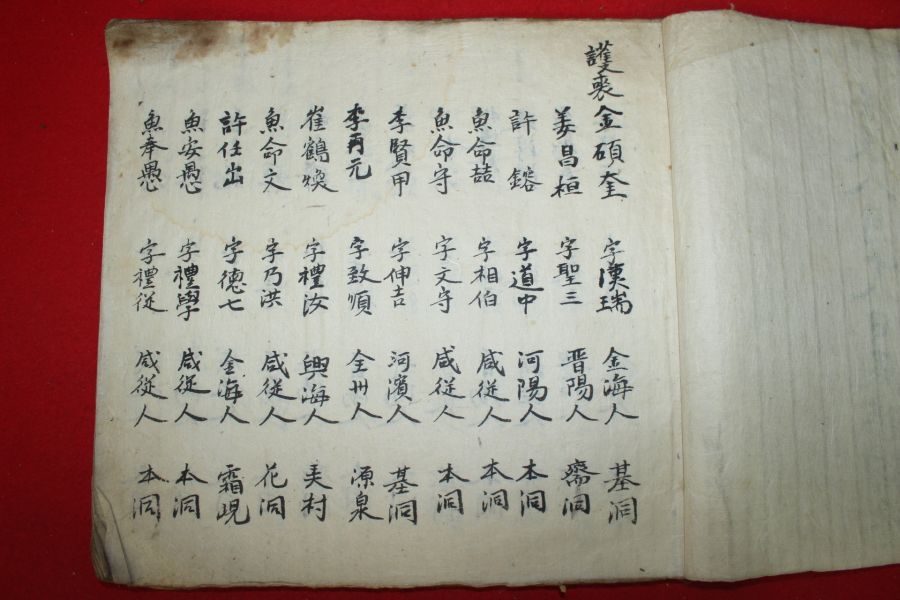 護喪 金碩奎 字漢瑞 金海人 基洞
姜昌桓 字聖三 晋陽人 齋洞
許鎔 字道中 河陽人 本洞
魚命喆 字相伯 咸従人 本洞
魚命守 字文守 咸従人 本洞
李賢甲 字伸吉 河濱人 基洞
李再元 字致順 全州人 源泉
崔鶴煥 字禮汝 興海人 美村
魚命文 字乃洪 咸従人 花洞
許任出 字德七 金海人 霜峴
魚安愚 字禮學 咸従人 本洞
魚奉愚 字禮従 咸従人 本洞